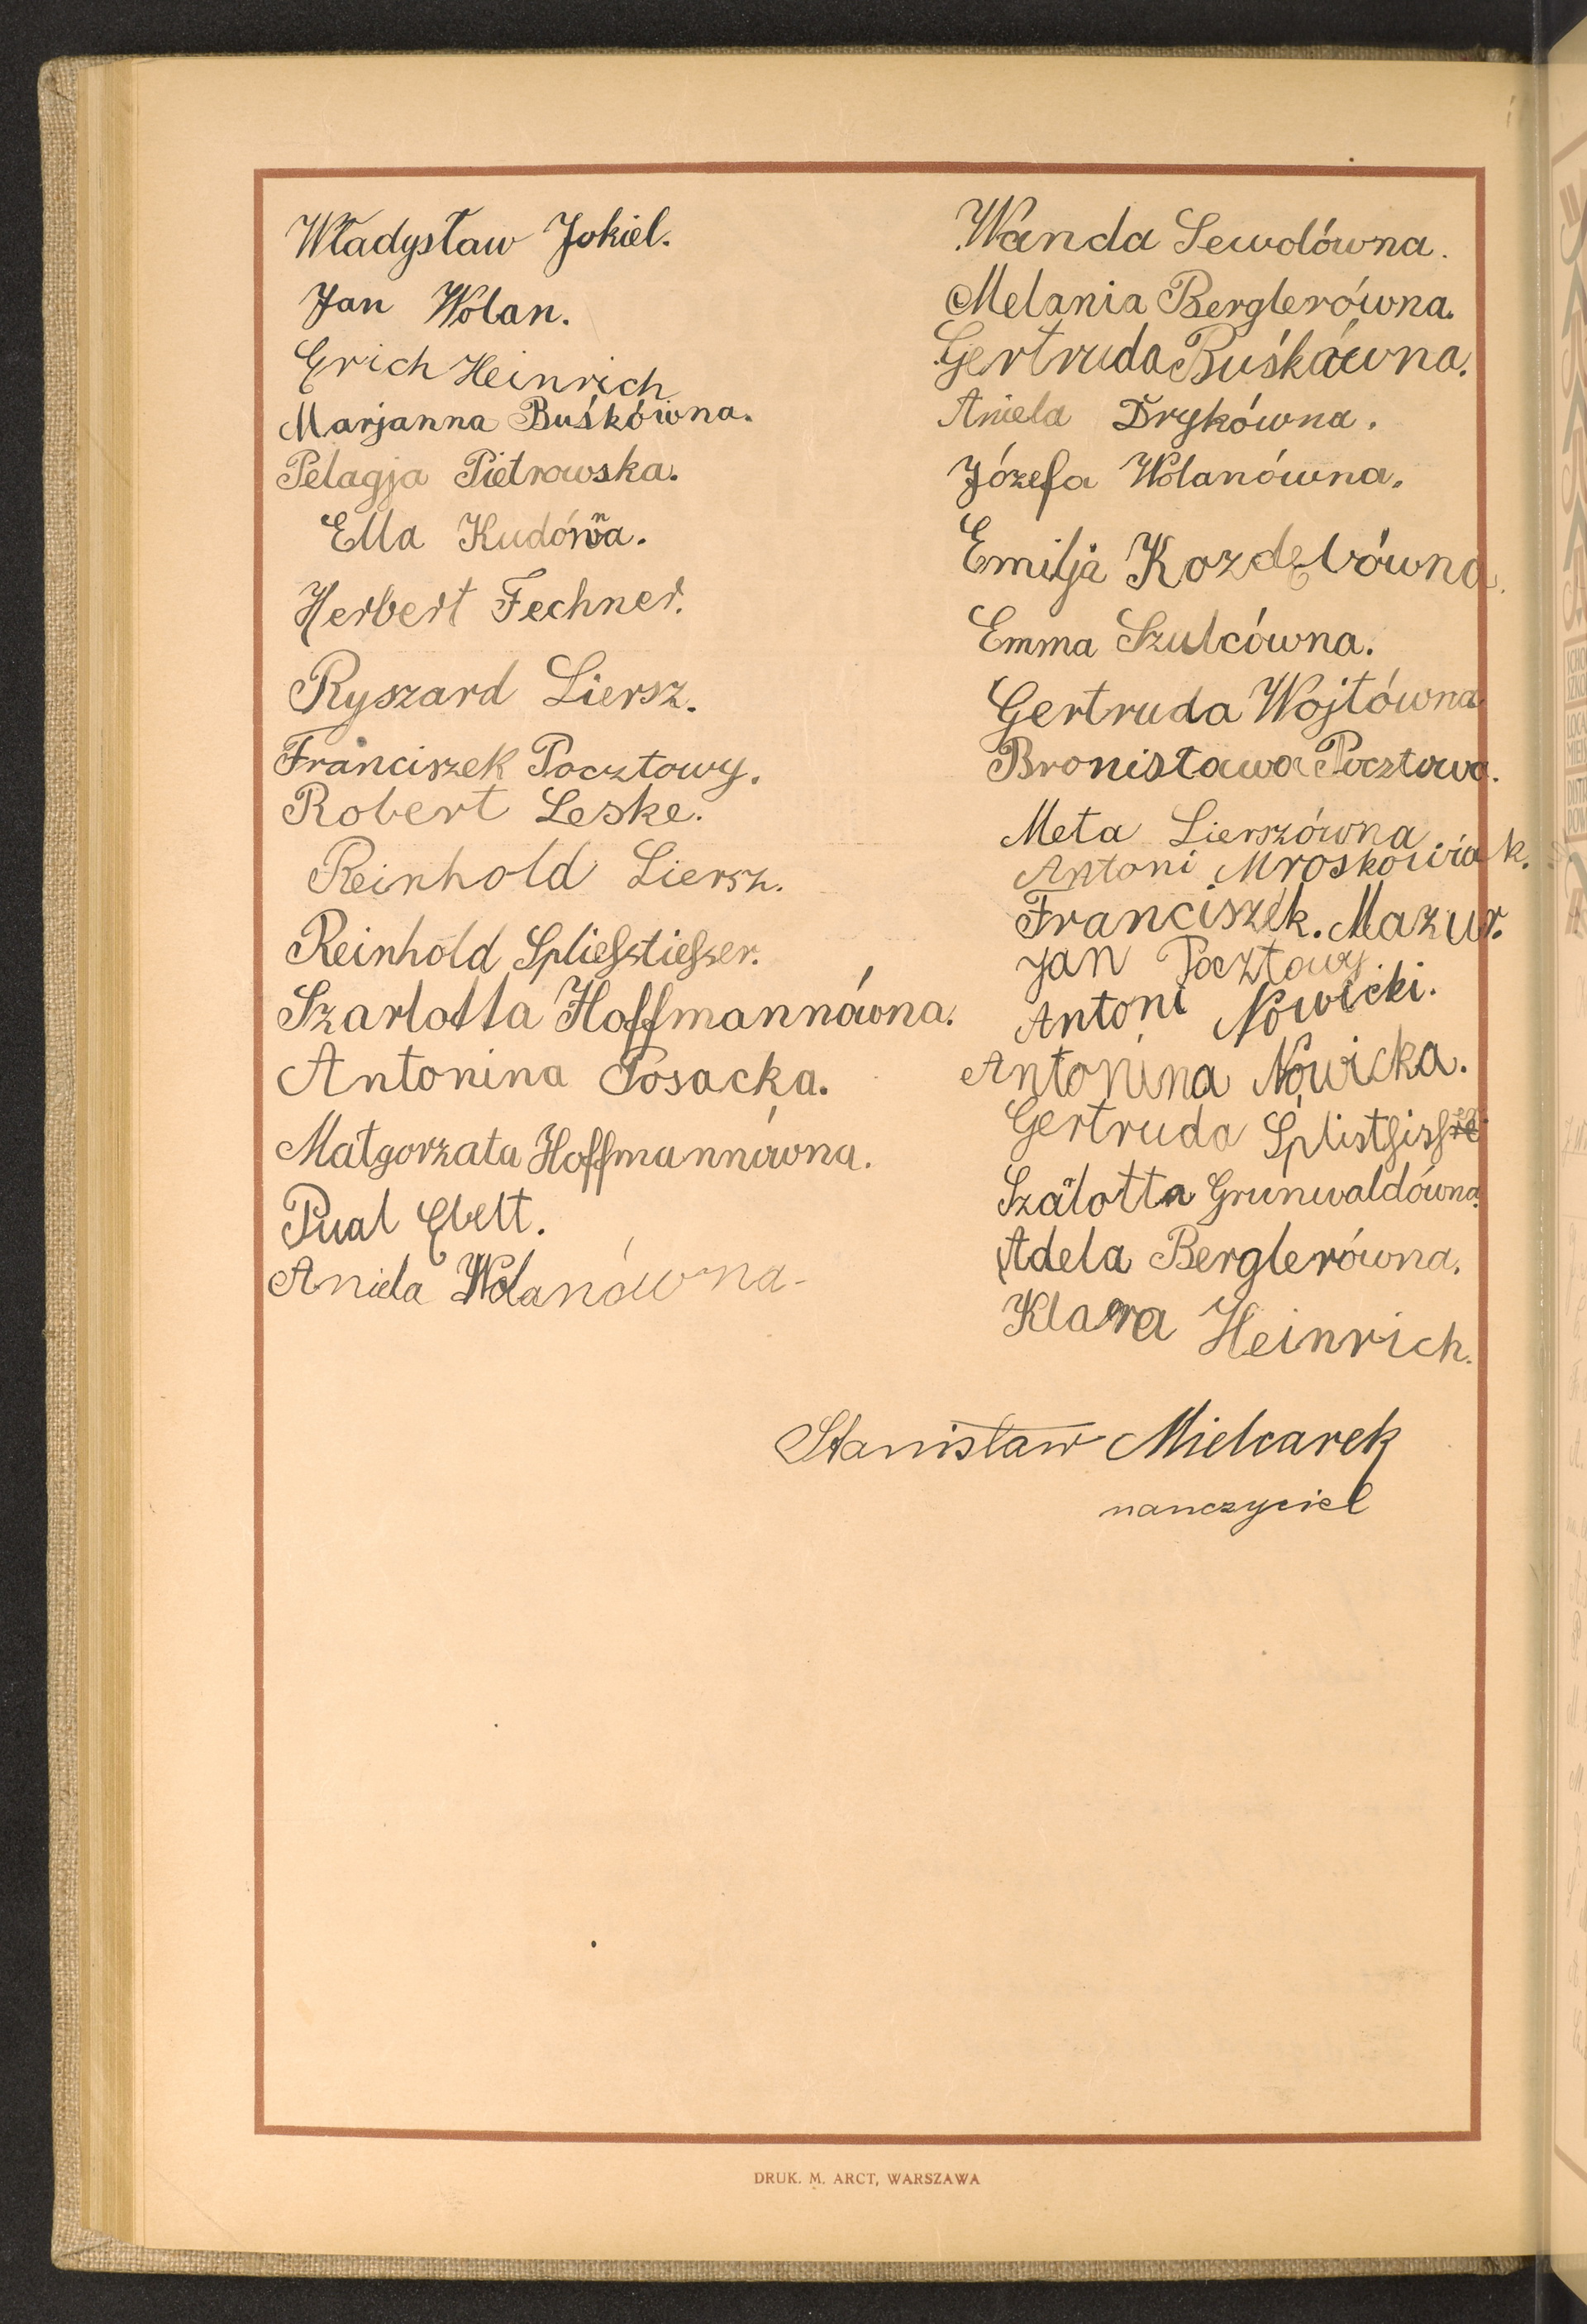 Władysław Jokiel.
Jan Wolan.
Erich Heinrich
Marjanna Buśkówna.
Pelagja Pietrowska.
Ella Kudówna.
Herbert Fechner.
Ryszard Liersz.
Franciszek Pocztowy.
Robert Leske.
Reinhold Liersz.
Reinhold Spliesstiesser.
Szarlotta Hoffmannówna.
Antonina Posacka.
Małgorzata Hoffmannówna.
Pual Ebelt.
Aniela Wolanówna
Wanda Sewolówna.
Melania Berglerówna.
Gertruda Buśkówna.
Aniela Drykówna.
Józefa Wolanówna.
Emilja Kozdelrówna.
Emma Szulcówna.
Gertruda Wojtówna
Bronisława Pocztowa.
Meta Lierszówna
Antoni Mroskowiak.
Franciszek. Mazur.
Jan Pocztowy
Antoni Nowicki.
Antonina Nowicka.
Gertruda
Szalotta Grunwaldówna.
Adela Berglerówna.
Klara Heinrich.
Stanisław Mielcarek
nauczyciel
DRUK. M. ARCT, WARSZAWA